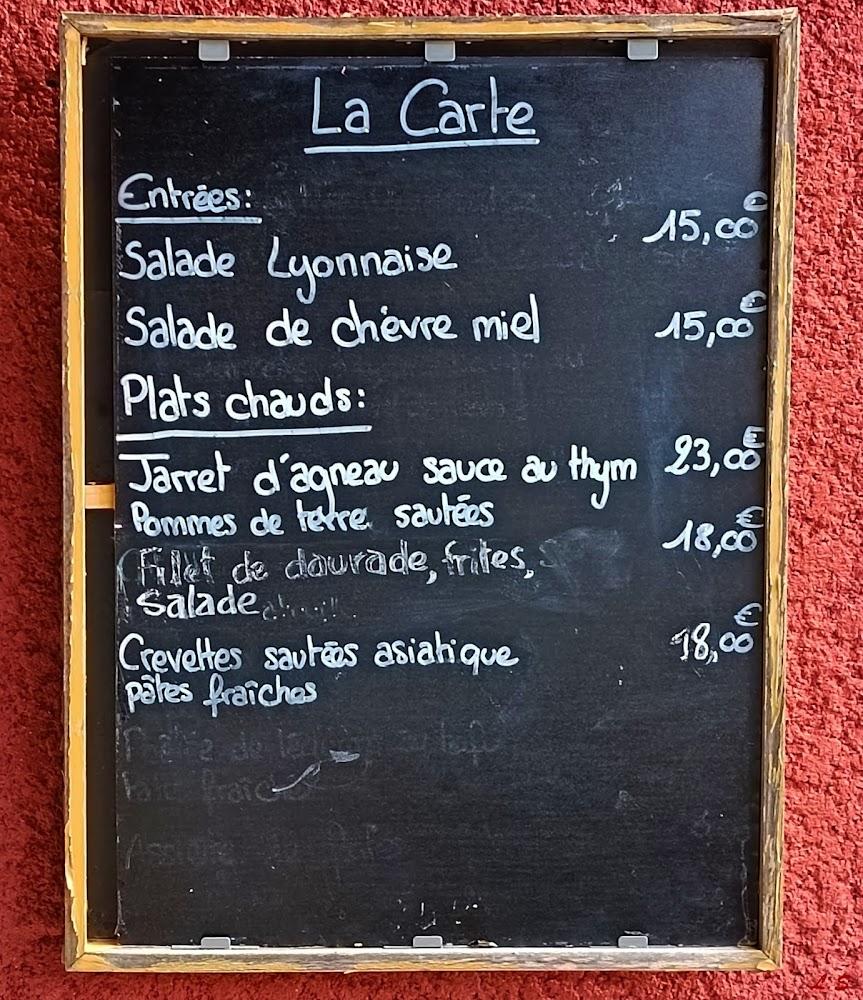 La Carte
Entrées:
Salade Lyonnaise 15,00€
Salade de chèvre miel 15,00€
Plats chauds:
Jarret d'agneau sauce au thym 23,00€
Pommes de terre sautées
Filet de daurade, frites, 18,00€
Salade
Crevettes sautées asiatique 18,00€
pâtes fraîches